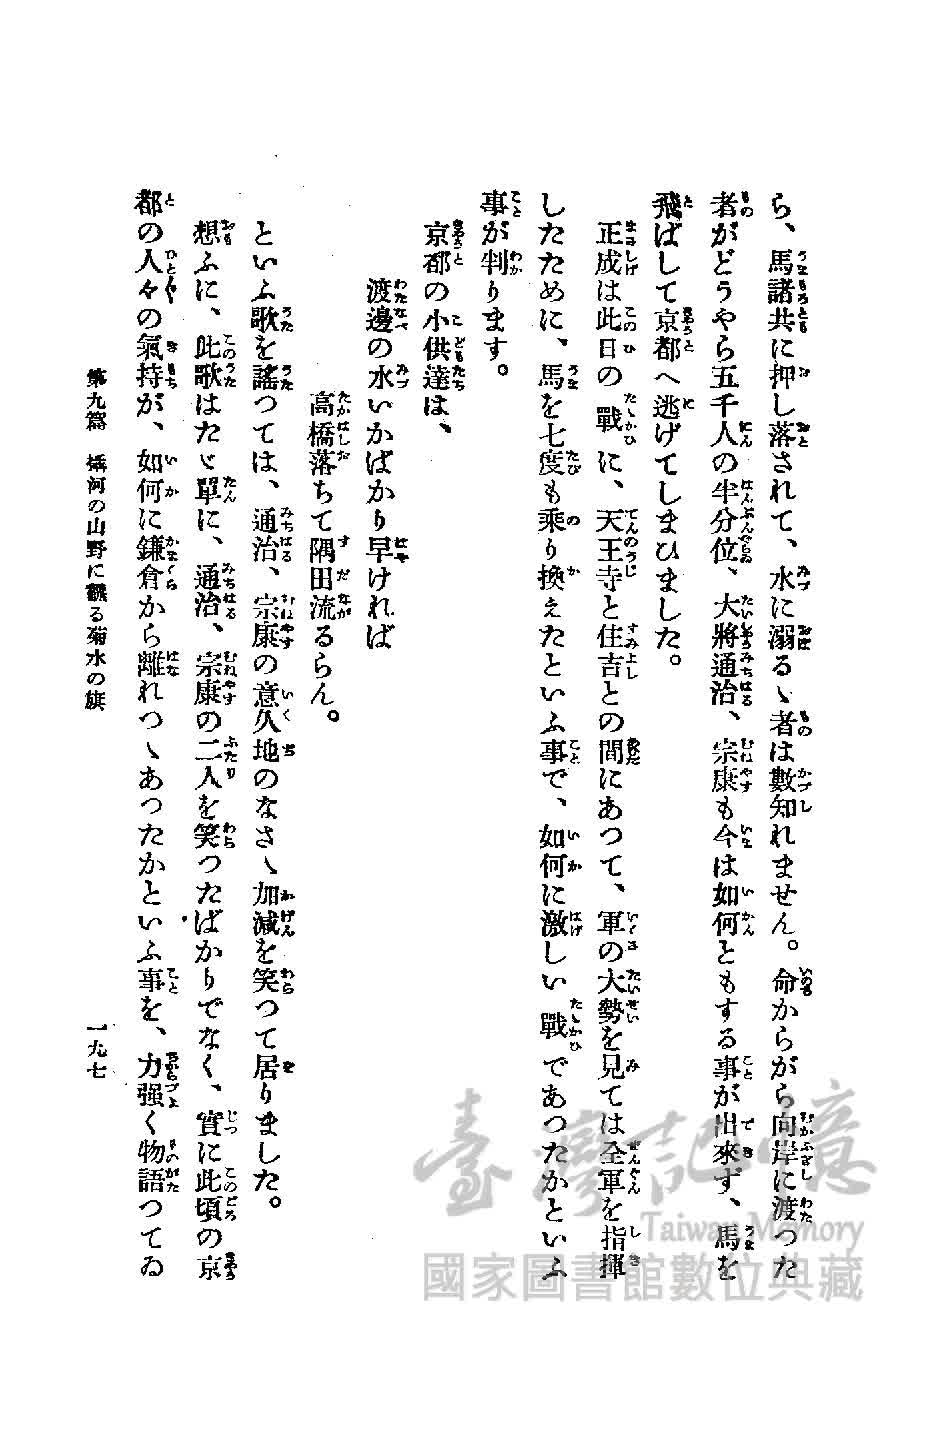 ら、馬諸共に押し落されて、水に溺るゝ者は數知れません。命からがら向岸に渡つた
者がどうやら五千人の半分位、大將通治、宗康も今は如何ともする事が出來ず、馬を
飛ばして京都へ逃げてしまひました。
正成は此日の戰に、天王寺と住吉との間にあつて、軍の大勢を見ては全軍を指揮
したために、馬を七度も乘り換えたといふ事で、如何に激しい戰であつたかといふ
事が判ります。
京都の小供達は、
渡邊の水いかばかり早ければ
高橋落ちて隅田流るらん。
といふ歌を謠つては、通治、宗康の意久地のなさゝ加減を笑つて居りました。
想ふに、此歌はたゞ單に、通治、宗康の二人を笑つたばかりでなく、實に此頃の京
都の人々の氣持が、如何に鎌倉から離れつゝあつたかといふ事を、力强く物語つてゐ
第九篇 攝河の山野に飜る菊水の旗
一九七
臺灣記憶
Taiwan Memory
國家圖書館數位典藏